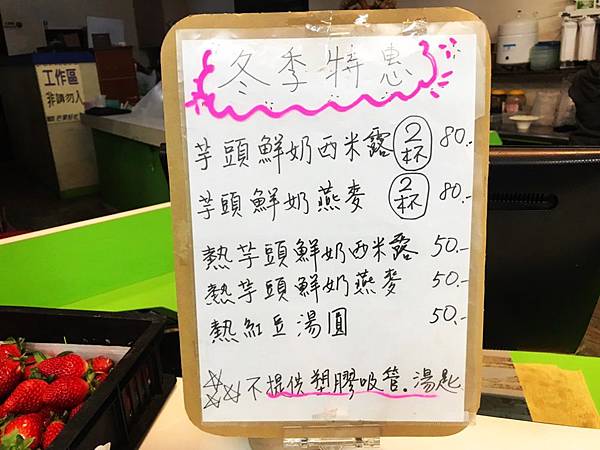 冬季特惠
芋頭鮮奶西米露 2杯 80.-
芋頭鮮奶燕麥 2杯 80.-
熱芋頭鮮奶西米露 50.-
熱芋頭鮮奶燕麥 50.-
熱紅豆湯圓 50.-
☆☆☆不提供塑膠吸管.湯匙
工作區
非請勿入